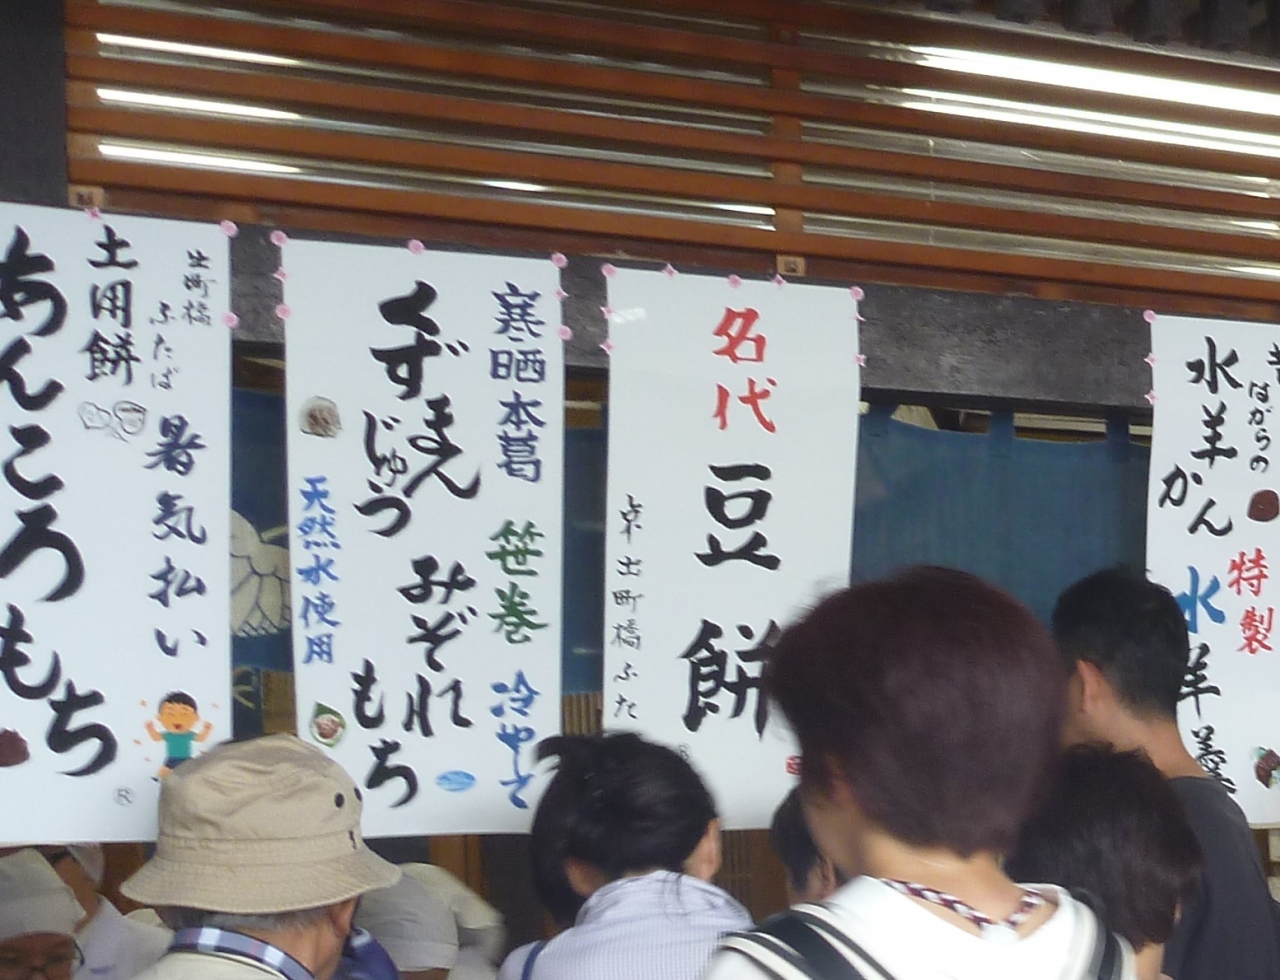 水羊かん
特製
水羊羹
名代
豆餅
京出町橋ふた
寒晒本葛
笹巻
冷やして
くずまんじゅう
みぞれもち
天然水使用
出町橋
ふたば
暑気払い
土用餅
あんころもち
®